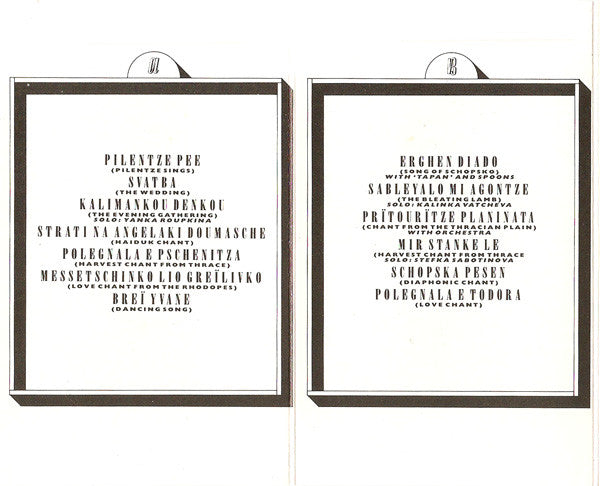 A
PILENTZE PEE
(PILENTZE SINGS)
SVATBA
(THE WEDDING)
KALIMANKOU DENKOU
(THE EVENING GATHERING)
SOLO: YANKA ROUPKINA
STRATI NA ANGELAKI DOUMASCHE
(HAIDUK CHANT)
POLEGNALA E PSCHENITZA
(HARVEST CHANT FROM THRACE)
MESSETSCHINKO LIO GREÏLIVKO
(LOVE CHANT FROM THE RHODOPES)
BREÏ YVANE
(DANCING SONG)
B
ERGHEN DIADO
(SONG OF SCHOPSKO)
WITH 'TAPAN' AND SPOONS
SABLEYALO MI AGONTZE
(THE BLEATING LAMB)
SOLO: KALINKA VATCHEVA
PRÏTOURÏTZE PLANINATA
(CHANT FROM THE THRACIAN PLAIN)
WITH ORCHESTRA
MIR STANKE LE
(HARVEST CHANT FROM THRACE
SOLO: STEFKA SABOTINOVA
SCHOPSKA PESEN
(DIAPHONIC CHANT)
POLEGNALA E TODORA
(LOVE CHANT)